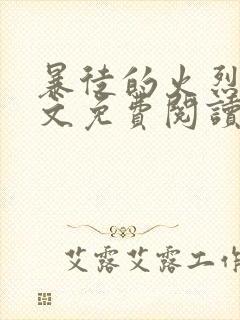 暴徒的火烈
文免費閱讀
艾露艾露工作